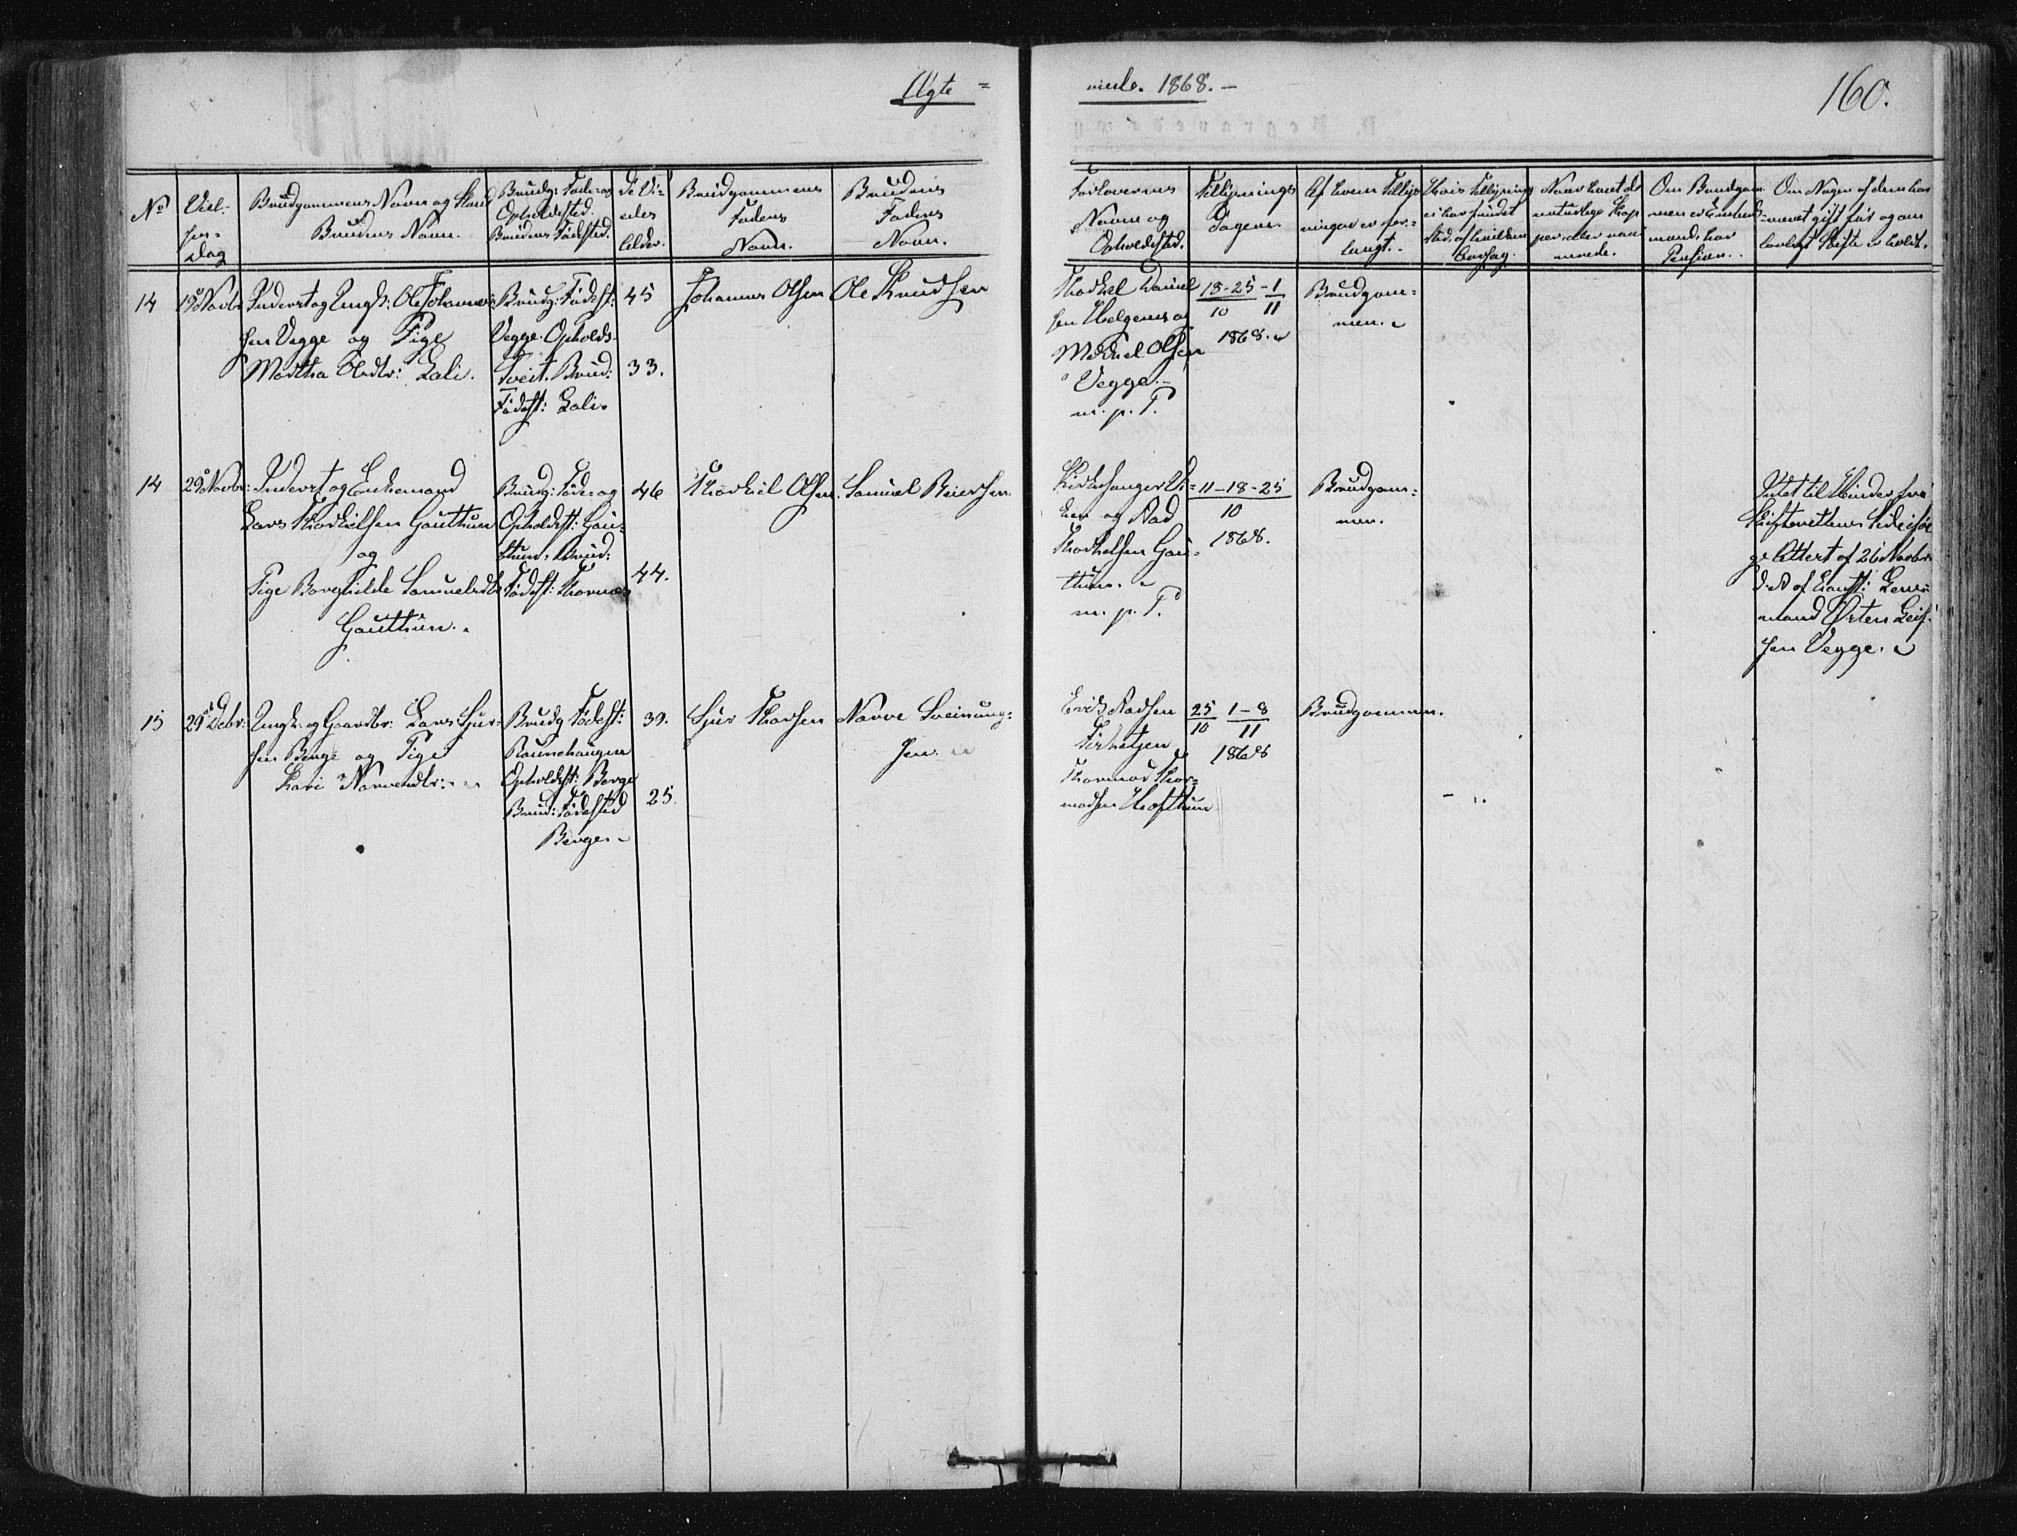 Ægte =
viede. 1868. —
160.
No
Viel-
sens-
dag
Brudgommens Navn og Stand
Brudens Navn.
Brudg: Føde- og
Opholdssted.
Brudens Fødested.
de Vi-
edes
Alder.
Brudgommens
Faders
Navn.
Brudens
Faders
Navn.
Forlovernes
Navne og
Opholdssted.
Tillysnings
Dagene.
Af hvem Tillys-
ningen er for-
langt.
Hvis Tillysning
ei har fundet
Sted, af hvilken
Aarsag.
Naar havt de
naturlige Kop-
per eller vac-
cinerede.
Om Brudgom-
men er Enke-
mand, har
Pension.
Om Nogen af dem har
været gift før og om
lovligt Skifte er holdt.
14
19 Novbr
Inderst og Ungk: Ole Johannes-
sen Vegge og Pige
Martha Olsdtr: Lali.
Brudg: Fødest:
Vegge. Opholds
Tveit. Brud:
Fødest: Lali.
45
33.
Johannes Olsen
Ole Knudsen
Thorkel Daniel
sen Helgenes og
Michael Olsen
Vegge.
m. p. P.
18-25-1
10 11
1868.
Brudgom-
men.
14
29 Novbr:
Inderst og Enkemand
Lars Thorkielsen Gauthun
og
Pige Borghilde Samuelsdtr
Gauthun.
Brudg: Føde og
Opholdsst: Gau-
thun. Brud:
Fødest: Thornæs
46
44.
Thorkiel Olsen.
Samuel Reiersen.
Kirkesanger
og Aad
Thorkelsen Gau-
thun.
m. p. P.
11-18-25
10
1868.
Brudgom-
men.
Intet til Hinder fra
Skifterettens Side iføl-
ge Attest af 26 Novbr
d. A. af Const: Lens-
mand Østen Leif-
sen Vegge.
15
29 Debr:
Ungk: og Gaardbr: Lars Sjur-
sen Berge og Pige
Kari Narvesdtr:
Brudg Fødest:
Raunehaugen
Opholdsst: Berge
Brud: Fødested
Berge.
39.
25.
Sjur Thorsen
Narve Sveinung-
sen.
Erik Aadsen
Thormod Thor-
modsen Hofthun
25 1-8
10 11
1868
Brudgommen.